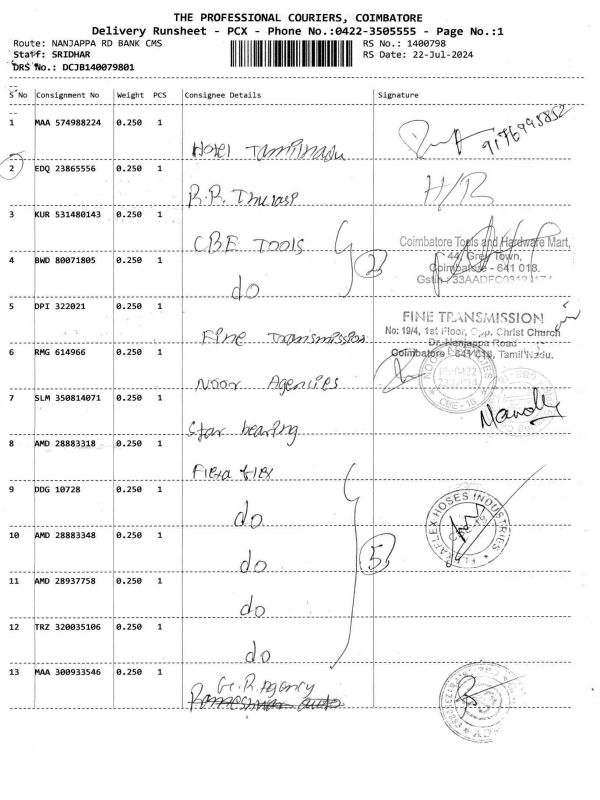 THE PROFESSIONAL COURIERS, COIMBATORE
Delivery Runsheet - PCX - Phone No.:0422-3505555 - Page No.:1
Route: NANJAPPA RD BANK CMS
RS No.: 1400798
Staff: SRIDHAR
RS Date: 22-Jul-2024
DRS No.: DCJB140079801
S No Consignment No Weight PCS Consignee Details Signature
1 MAA 574988224 0.250 1
Hotel Tamilnadu
9176995852
2 EDQ 23865556 0.250 1
R.R. H/R
3 KUR 531480143 0.250 1
CBE TOOLS
Coimbatore Tools and Hardware Mart,
44, Grey Town,
4 BWD 80071805 0.250 1
do
2
Coimbatore - 641 018.
Gstin
5 DPI 322021 0.250 1
Fine Transmission
FINE TRANSMISSION
No: 19/4, 1st Floor, Opp. Christ Church
Dr. Nanjappa Road
Coimbatore - 641 018, Tamil Nadu.
6 RMG 614966 0.250 1
Noor Agencies
7 SLM 350814071 0.250 1
Star bearing
8 AMD 28883318 0.250 1
Flexa flex
9 DDG 10728 0.250 1
do
FLEXAFLEX HOSES INDUSTRIES
10 AMD 28883348 0.250 1
do
5
11 AMD 28937758 0.250 1
do
12 TRZ 320035106 0.250 1
do
13 MAA 300933546 0.250 1
G.R. Agency